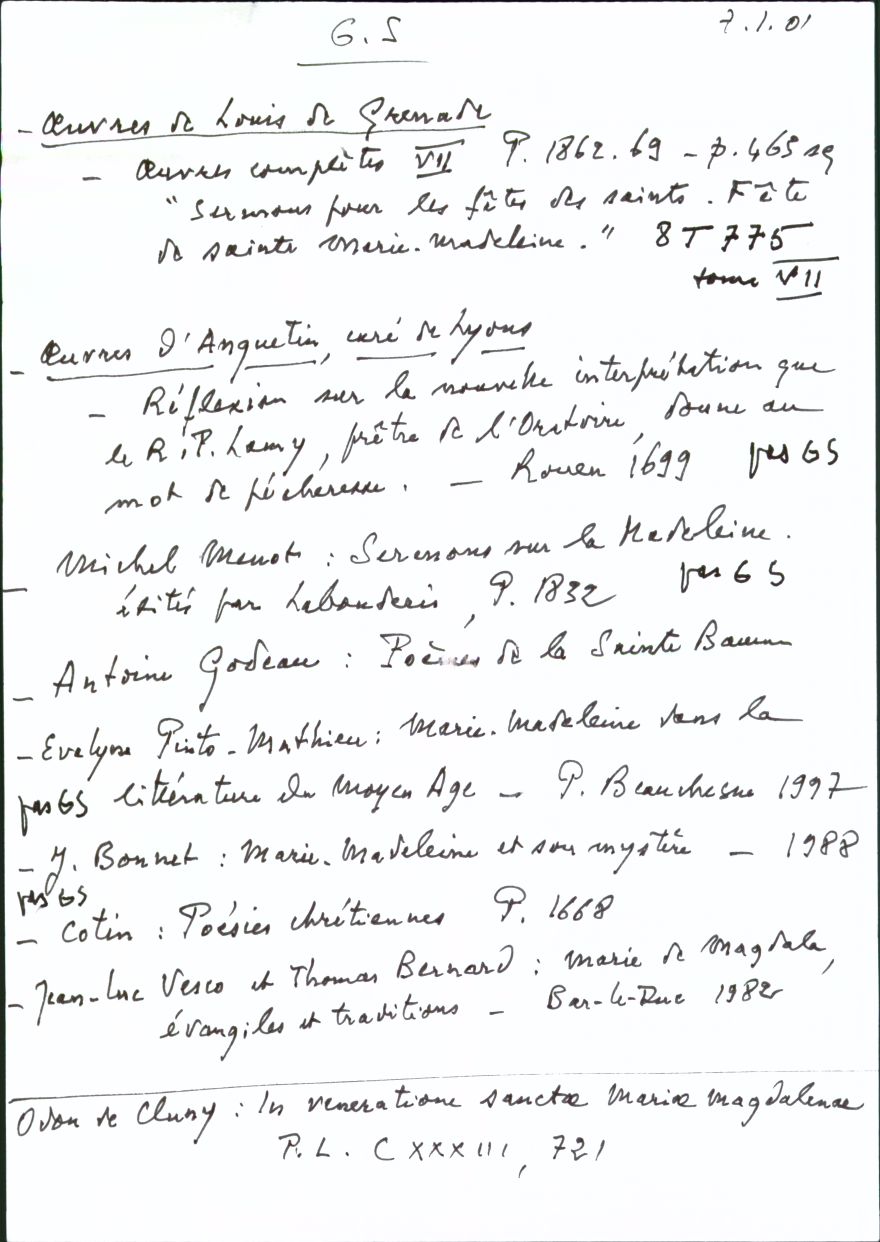 G.S
7.1.01
- Œuvres de Louis de Grenade
- Œuvres complètes VII P. 1862.69 - p. 465 sq
"Sermons pour les fêtes des saints. Fête
de sainte Marie-Madeleine." 8 T 775
tome VII
- Œuvres d'Anquetin, curé de Lyons
- Réflexion sur la nouvelle interprétation que
le R.P. Lamy, prêtre de l'Oratoire, donne au
mot de pécheresse. - Rouen 1699 pas GS
- Michel Menot : Sermons sur la Madeleine.
édités par Labouderie, P. 1832 pas GS
- Antoine Godeau : Poèmes de la Sainte Baume
- Evelyne Pinto-Mathieu : Marie-Madeleine dans la
pas GS littérature du Moyen Age - P. Beauchesne 1997
- J. Bonnet : Marie-Madeleine et son mystère - 1988
pas GS
- Cotin : Poésies chrétiennes P. 1668
- Jean-Luc Vesco et Thomas Bernard : Marie de Magdala,
évangiles et traditions - Bar-le-Duc 1982
Odon de Cluny : In veneratione sanctæ Mariæ Magdalenae
P.L. CXXXIII, 721